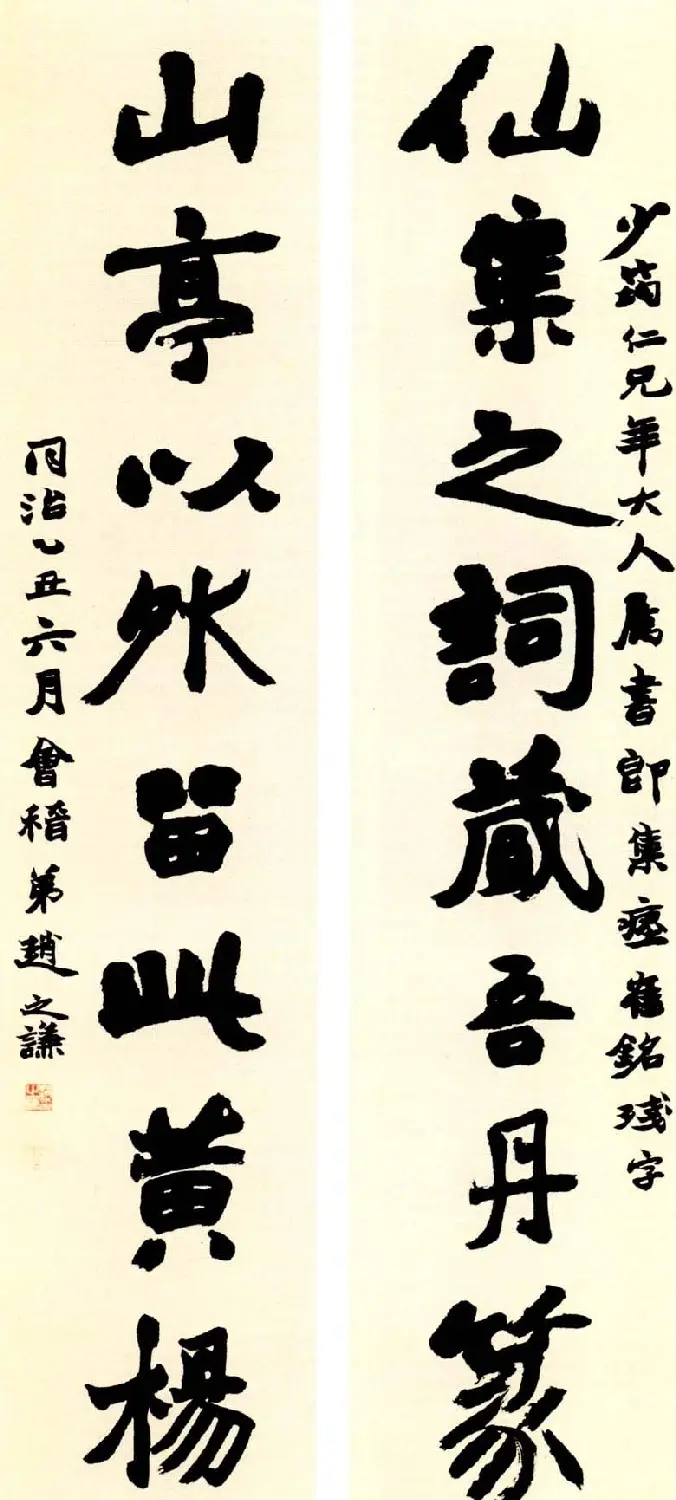 少筠仁兄年大人属書即集瘞崔銘殘字
仙集之詞蔵吾丹篆
山亭以外留此黄楊
同治乙丑六月會稽弟趙之謙